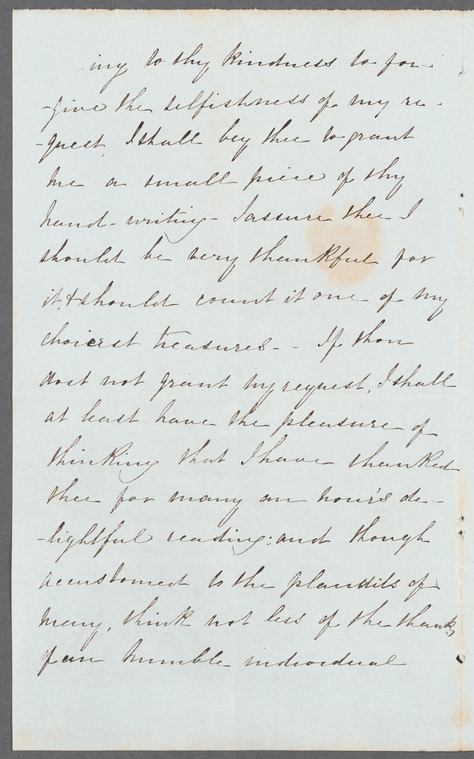 ing to thy kindness to for-
-give the selfishness of my re-
-quest, I shall beg thee to grant
me a small piece of thy
hand-writing - I assure thee I
should be very thankful for
it, & should count it one of my
choicest treasures - - If thou
dost not grant my request, I shall
at least have the pleasure of
thinking that I have thanked
thee for many an hour's de-
-lightful reading: and though
accustomed to the plaudits of
many, think not less of the thanks
of an humble individual